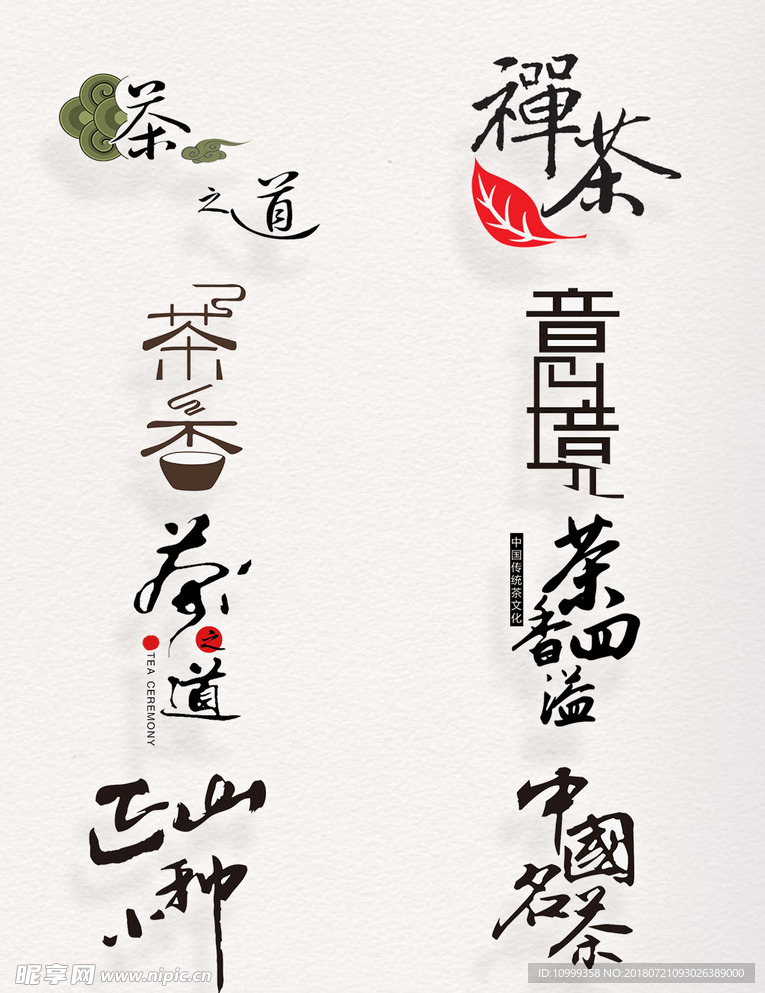 茶之道
禪茶
茶香
意境
茶之道
TEA CEREMONY
中国传统茶文化
茶香四溢
正山小种
中國名茶
昵享网 www.nipic.cn
ID:10999358 NO:20180721093026389000